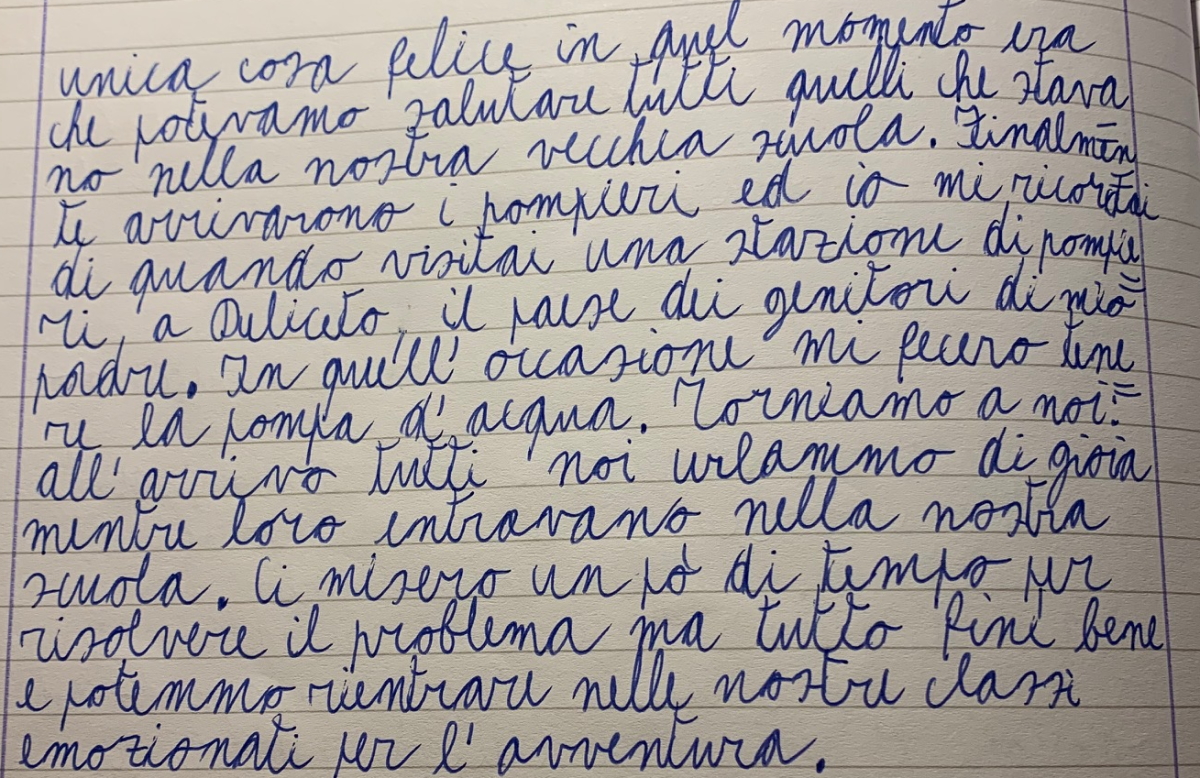 unica cosa felice in quel momento era
che potevamo salutare tutti quelli che stava
no nella nostra vecchia scuola. Finalmen
te arrivarono i pompieri ed io mi ricordai
di quando visitai una stazione di pompie
ri, a Deliceto, il paese dei genitori di mio
padre. In quell'occasione mi fecero tene
re la pompa d'acqua. Torniamo a noi:
all'arrivo tutti noi urlammo di gioia
mentre loro entravano nella nostra
scuola. Ci misero un pò di tempo per
risolvere il problema ma tutto finì bene
e potemmo rientrare nelle nostre classi
emozionati per l'avventura.